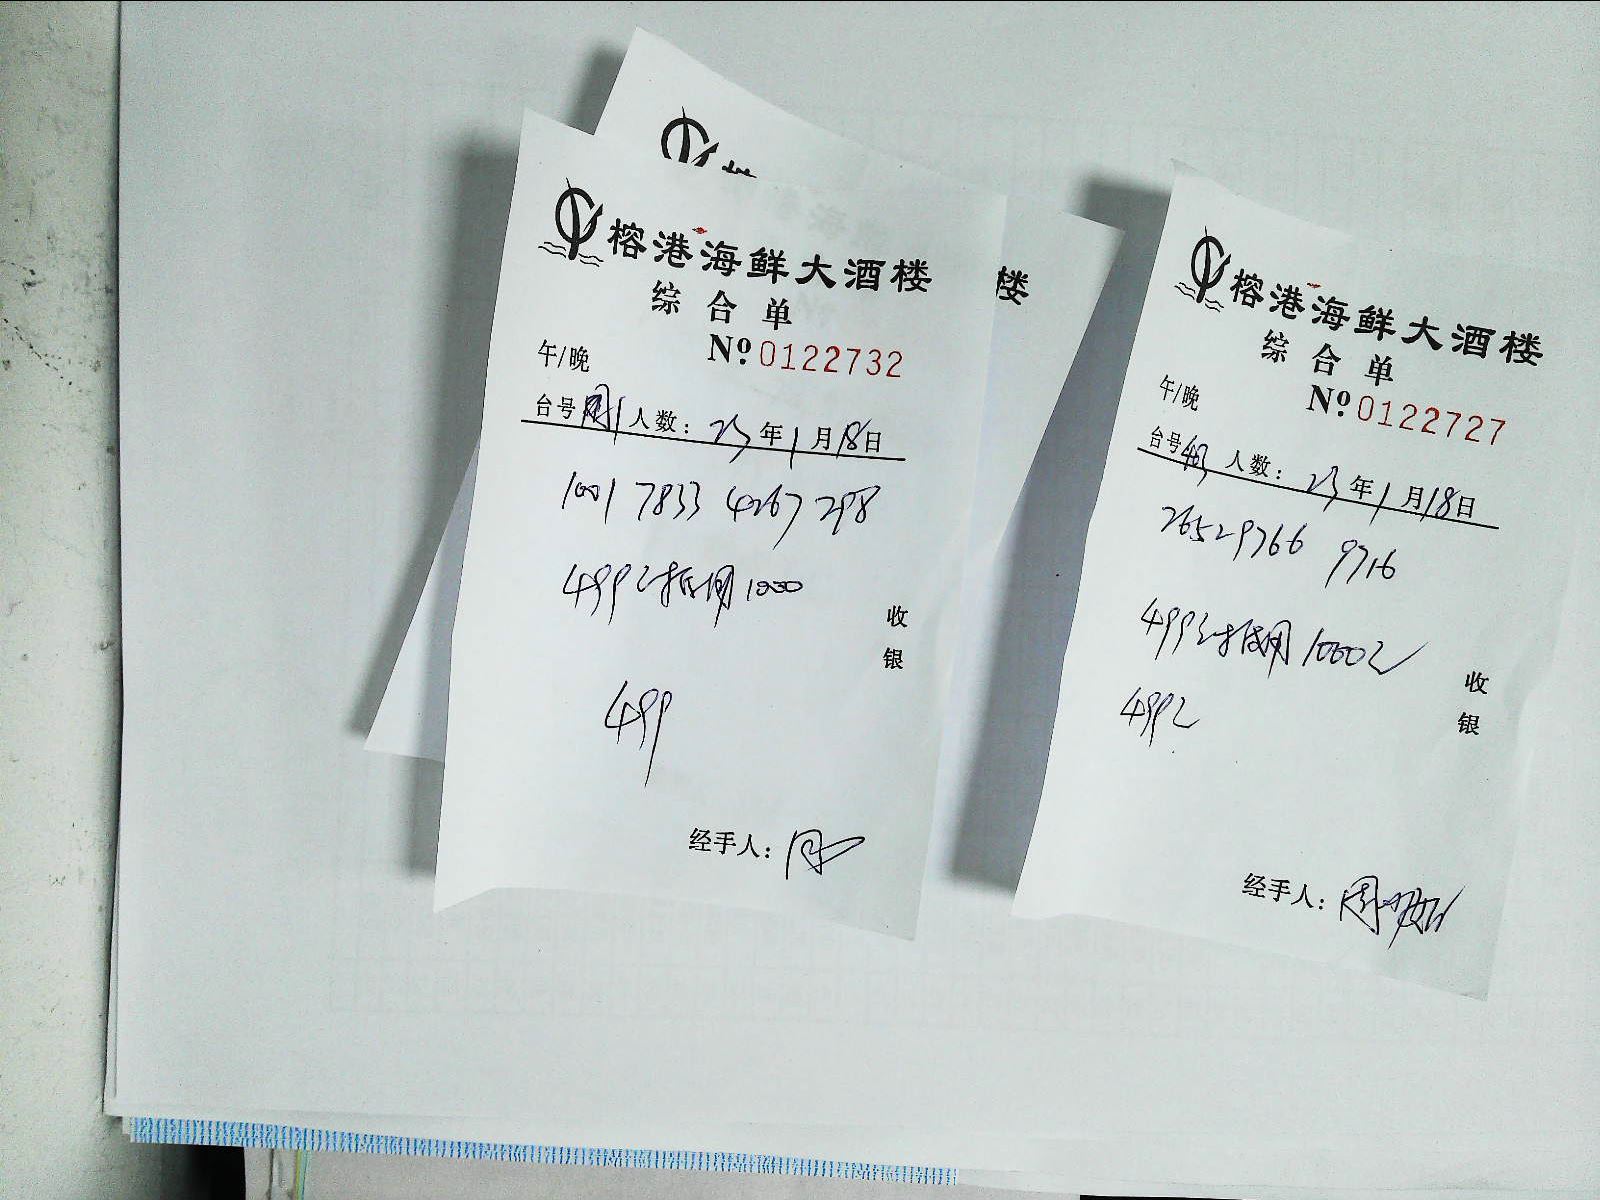 榕港海鲜大酒楼
综合单
午/晚
№0122732
台号 人数: 23年1月18日
1001 7833 4267 298
499元抵用1000
收
银
499
经手人:
楼
榕港海鲜大酒楼
综合单
午/晚
№0122727
台号 人数: 23年1月18日
26529766 9716
499元抵用1000元
收
银
499元
经手人: